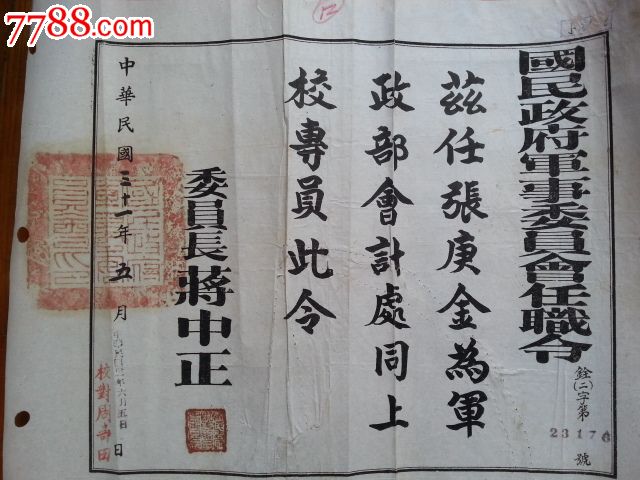 7788.com
國民政府軍事委員會任職令
銓(二)字第23176號
茲任張庚金為軍
政部會計處同上
校專員此令
委員長蔣中正
中華民國三十一年五月 日
校對周